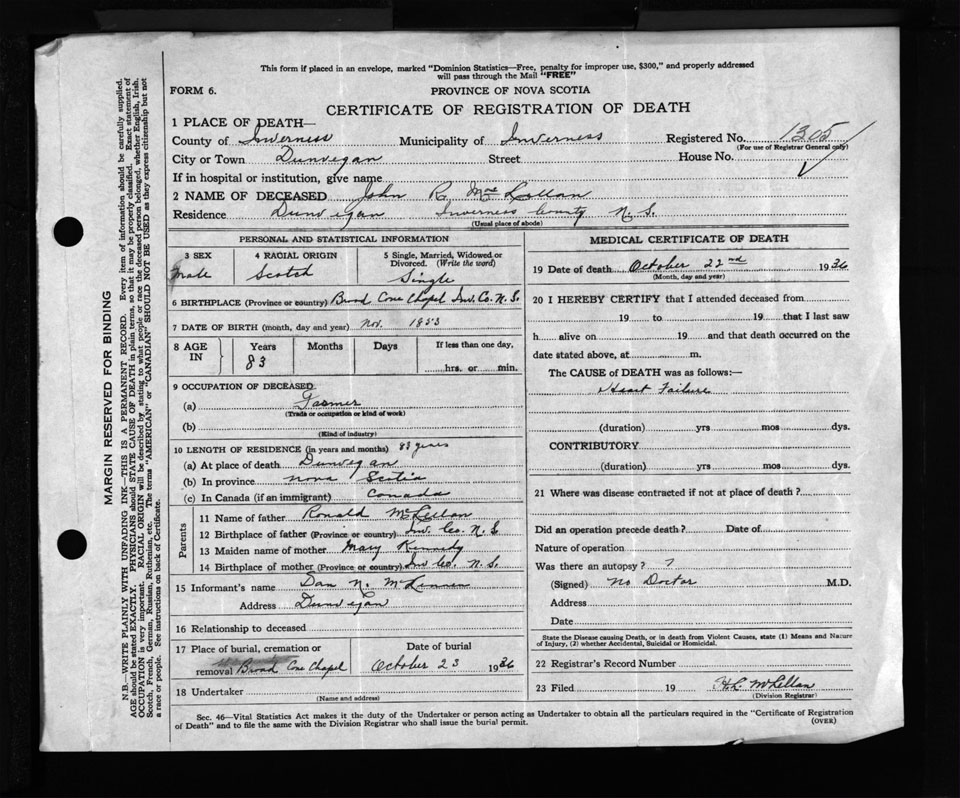 This form if placed in an envelope, marked "Dominion Statistics—Free, penalty for improper use, $300," and properly addressed
will pass through the Mail "FREE"
FORM 6.
PROVINCE OF NOVA SCOTIA
CERTIFICATE OF REGISTRATION OF DEATH
1 PLACE OF DEATH—
County of Inverness Municipality of Inverness Registered No. 1305
(For use of Registrar General only)
City or Town Dunvegan Street House No.
If in hospital or institution, give name
2 NAME OF DECEASED John R. McLellan
Residence Dunvegan Inverness County N.S.
(Usual place of abode)
PERSONAL AND STATISTICAL INFORMATION
3 SEX 4 RACIAL ORIGIN 5 Single, Married, Widowed or
Divorced. (Write the word)
Male Scotch Single
6 BIRTHPLACE (Province or country) Broad Cove Chapel Inv. Co. N.S.
7 DATE OF BIRTH (month, day and year) Nov. 1853
8 AGE IN Years Months Days If less than one day,
83 hrs. or min.
9 OCCUPATION OF DECEASED
(a) Farmer
(Trade or occupation or kind of work)
(b)
(Kind of industry)
10 LENGTH OF RESIDENCE (in years and months) 83 years
(a) At place of death Dunvegan
(b) In province Nova Scotia
(c) In Canada (if an immigrant) Canada
Parents
11 Name of father Ronald McLellan
12 Birthplace of father (Province or country) Inv. Co. N.S
13 Maiden name of mother Mary Kennedy
14 Birthplace of mother (Province or country) Inv Co. N.S.
15 Informant's name Dan N. McKinnon
Address Dunvegan
16 Relationship to deceased
17 Place of burial, cremation or Date of burial
removal Broad Cove Chapel October 23 1936
18 Undertaker
(Name and address)
MEDICAL CERTIFICATE OF DEATH
19 Date of death October 22nd 1936
(Month, day and year)
20 I HEREBY CERTIFY that I attended deceased from
19 to 19 that I last saw
h alive on 19 and that death occurred on the
date stated above, at m.
The CAUSE of DEATH was as follows:—
Heart Failure
(duration) yrs mos dys.
CONTRIBUTORY
(duration) yrs. mos dys.
21 Where was disease contracted if not at place of death?
Did an operation precede death? Date of
Nature of operation
Was there an autopsy? ?
(Signed) No Doctor M.D.
Address
Date
State the Disease causing Death, or in death from Violent Causes, state (1) Means and Nature
of Injury, (2) whether Accidental, Suicidal or Homicidal.
22 Registrar's Record Number
23 Filed 19 McLellan
(Division Registrar)
Sec. 46—Vital Statistics Act makes it the duty of the Undertaker or person acting as Undertaker to obtain all the particulars required in the "Certificate of Registration
of Death" and to file the same with the Division Registrar who shall issue the burial permit. (OVER)
MARGIN RESERVED FOR BINDING
N.B.—WRITE PLAINLY WITH UNFADING INK—THIS IS A PERMANENT RECORD. Every item of information should be carefully supplied.
AGE should be stated EXACTLY. PHYSICIANS should STATE CAUSE OF DEATH in plain terms, so that it may be properly classified. Exact statement of
OCCUPATION is very important. RACIAL ORIGIN will be described by stating to what people or race the deceased person belonged, whether English, Irish,
Scotch, French, German, Russian, Ruthenian, etc. The terms "AMERICAN" or "CANADIAN" SHOULD NOT BE USED as they express citizenship but not
a race or people. See instructions on back of Certificate.